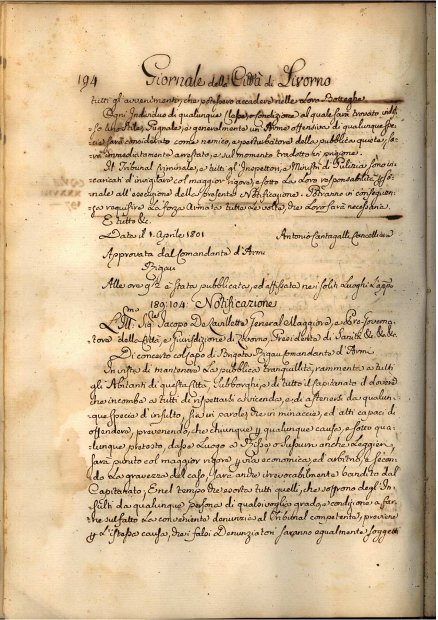 194 Giornale della Città di Livorno
tutti gl'avvenimenti, che potessero accadere nelle loro Botteghe.
Ogni Individuo di qualunque Classe, o condizione al quale sarà trovato indos=
so uno Stile, Pugnale, e generalmente un'Arme offensiva di qualunque spe=
cie sarà considerato come nemico, e perturbatore della pubblica quiete, sa=
rà immediatamente arrestato, e sul momento tradotto in prigione.
Il Tribunal Criminale, e tutti gl'Inspettori, e Ministri di Pulizia sono in=
caricati d'invigilare col maggior rigore, e sotto la loro responsabilità
all'esecuzione della presente Notificazione. Potranno in conseguen=
za requisire la forza Armata tutte le volte, che loro sarà necessaria.
E tutto &c.
Data il 1. Aprile 1801 Antonio Cantagalli Cancelliere
Approvata dal Comandante d'Armi
Rigau
Alle ore 9/2 è stata pubblicata, ed affissata nei soliti Luoghi
189:104: Notificazione
L'Ill:mo Sig: Jacopo De Lavillette General Maggiore, e Pro-Governa=
tore della Città, e Giurisdizione di Livorno, Presidente di Sanità &c. &c. &c.
Di concerto col Capo di Brigata Rigau Comandante d'Armi
In vista di mantenere la pubblica tranquillità, rammenta a tutti
gl'Abitanti di questa Città, Subborghi, e di tutto il Capitanato il dovere
che incombe a tutti di rispettarsi a vicenda, e di astenersi da qualun=
que specie d'insulto, sia in parole, che in minaccie, ed atti capaci di
offendere, prevenendo, che chiunque p qualunque causa, e sotto qua=
lunque pretesto, dasse luogo a Risse, o disturbi anche Leggieri
sarà punito col maggior rigore p via economica, ed arbitrio, e secon=
do la gravezza del caso, sarà anche irrevocabilmente bandito dal
Capitanato, E nel tempo che esorta tutti quelli, che soffrono degl'In=
sulti da qualunque persona di qualsivoglia grado, e condizione a far=
ne sul fatto la conveniente denunzia al Tribunal competente, previene
p l'istessa causa, che i falsi Denunziatori saranno egualmente soggetti